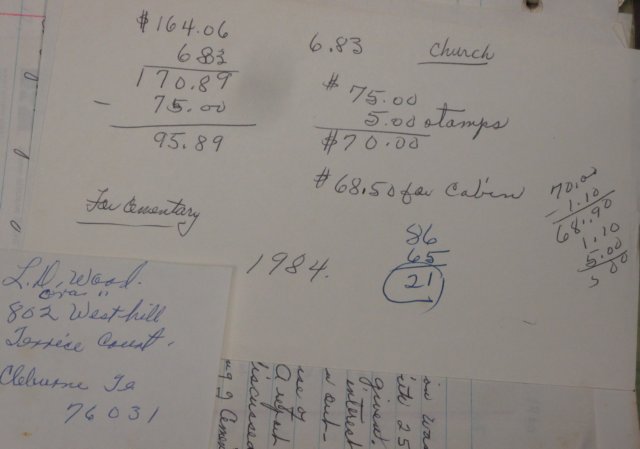 $164.06
6.83
170.89
- 75.00
95.89
For Cementary
6.83
Church
$75.00
5.00 stamps
$70.00
$68.50 for Cabin
1984.
86
65
21
70.00
- 1.10
68.90
1.10
5.00
L.D. Wood.
802 Westhill
Terrice Court.
Cleburne Te
76031
in was
with 25
given.
interest
discussed